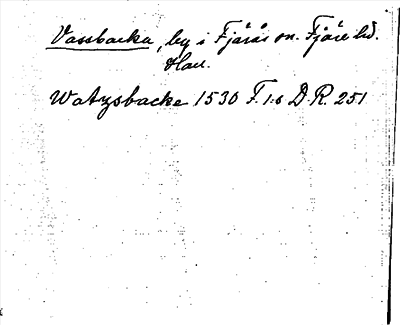 Vassbacka, by i Fjärås sn. Fjäre hd.
Hall.
Watzsbacke 1530 F.1:6 D.R. 251